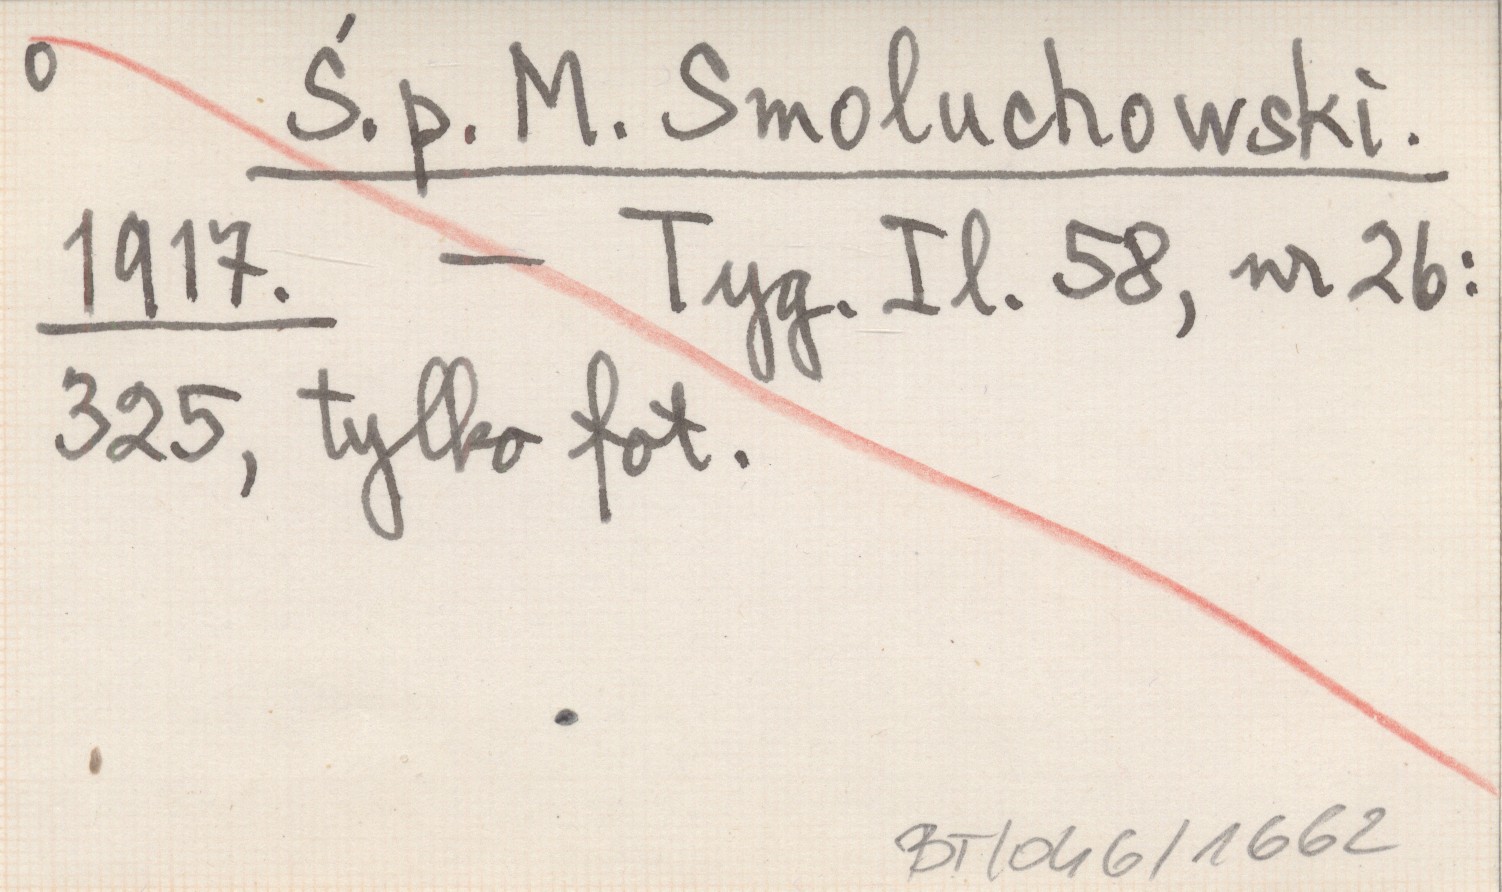 o Ś. p. M. Smoluchowski.
1917. — Tyg. Il. 58, nr 26:
325, tylko fot.
BT/046/1662